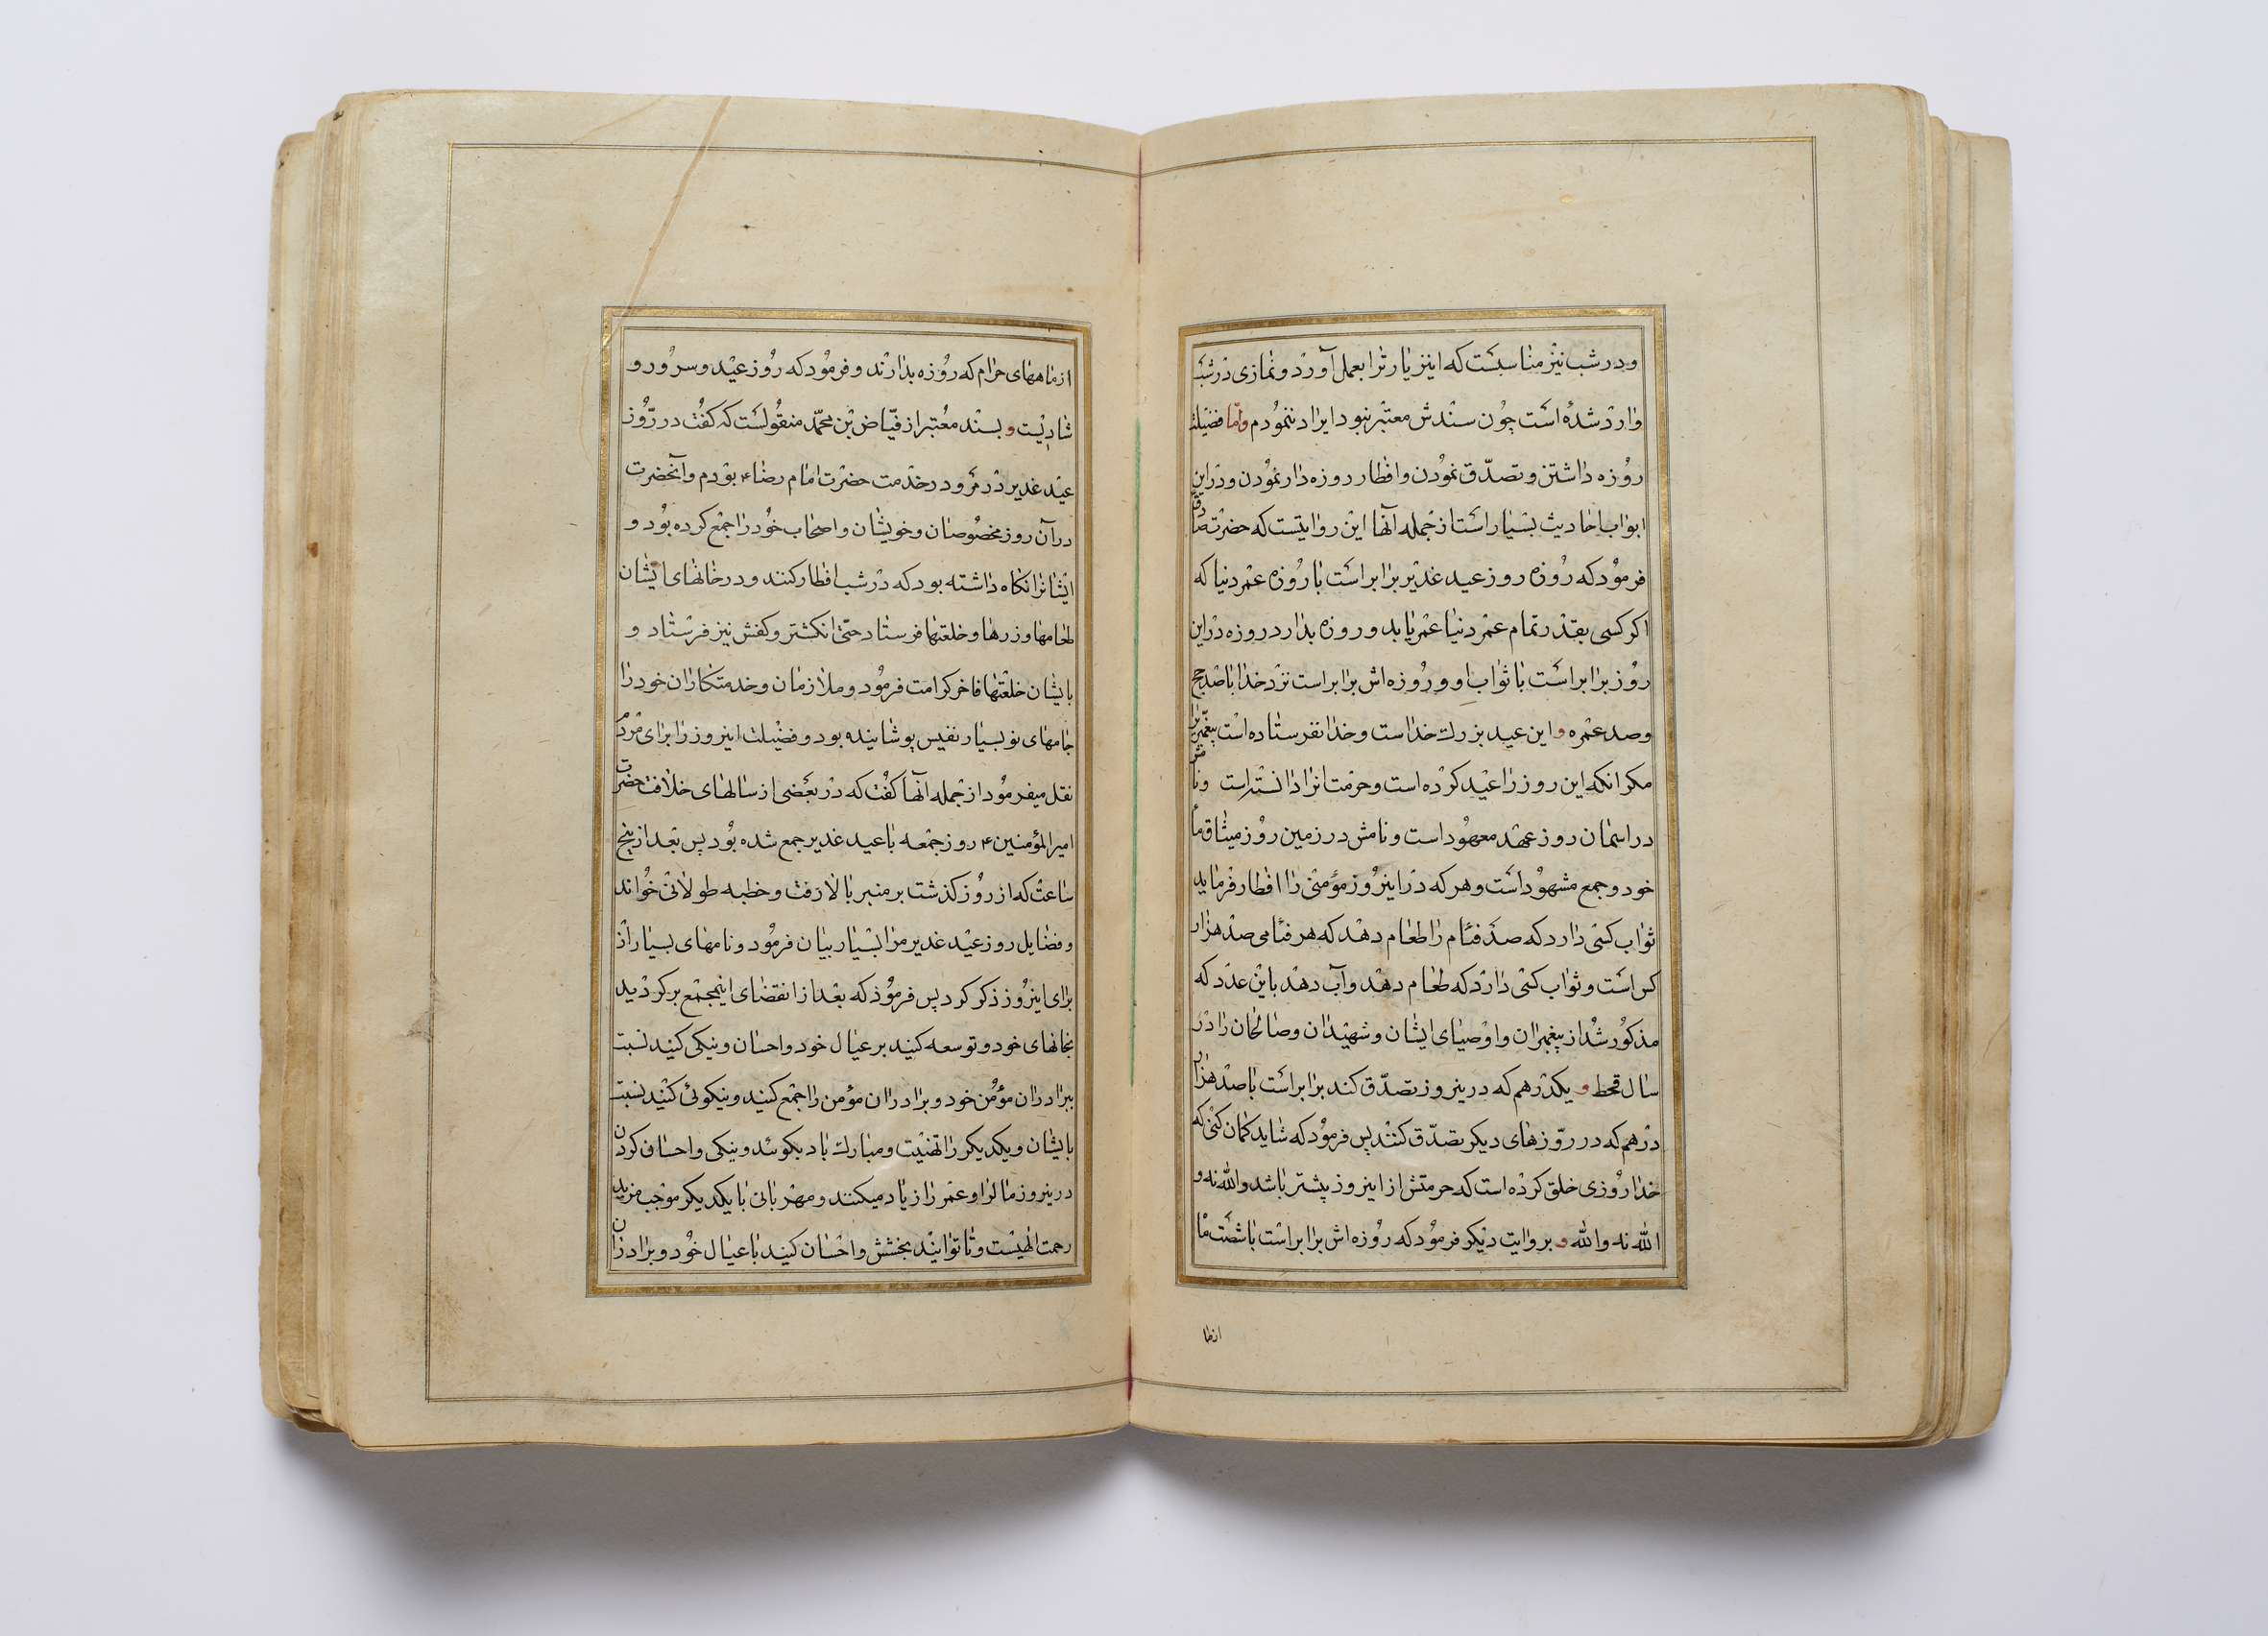 و در شب نیز مناسبست که این زیارترا بعمل آورد و نمازی در شب
وارد شده است چون سندش معتبر نبود ایراد ننمودم و امّا فضیلت
روزه داشتن و تصدّق نمودن و افطار روزه دار نمودن و در این
ابواب احادیث بسیار است از جمله آنها این روایتست که حضرت صادق
فرمود که روزه روز عید غدیر برابر است با روزه عمر دنیا که
اکر کسی بقدر تمام عمر دنیا عمر یابد و روزه بدارد روزه در این
روز برابر است با ثواب او و روزه اش برابر است نزد خدا با صد حج
و صد عمره و این عید بزرك خداست و خدا نفرستاده است پیغمبریرا
مکر انکه این روز را عید کرده است و حرمت انرا دانسته است و نامش
در اسمان روز عهد معهود است و نامش در زمین روز میثاق مأ
خود و جمع مشهود است و هر که در این روز مؤمنی را افطار فرماید
ثواب کسی دارد که صد فئام را طعام دهد که هر فئامی صد هزار
کس است و ثواب کسی دارد که طعام دهد و آب دهد باین عدد که
مذکور شد از پیغمبران و اوصیای ایشان و شهیدان و صالحان را در
سال قحط و یکدرهم که در ینروز تصدّق کند برابر است با صد هزار
درهم که در روزهای دیکر تصدّق کنند پس فرمود که شاید کمان کنی که
خدا روزی خلق کرده است که حرمتش از اینروز بیشتر باشد والله نه و
الله نه والله و بروایت دیکر فرمود که روزه اش برابر است با شصت ما
ازما
از ماههای حرام که روزه بدارند و فرمود که روز عید و سرور و
شادیست و بسند معتبر از فیّاض بن محمّد منقولست که کفت در روز
عید غدیر در مرو در خدمت حضرت امام رضا۴ بودم و آنحضرت
در آن روز مخصوصان و خویشان و اصحاب خود را جمع کرده بود و
ایشانرا نکاه داشته بود که در شب افطار کنند و در خانهای ایشان
طعامها و زرها و خلعتها فرستاد حتی انکشتر و کفش نیز فرستاد و
بایشان خلعتها فاخر کرامت فرمود و ملازمان و خدمتکاران خود را
جامهای نو بسیار نفیس پوشاینده بود و فضیلت اینروز را برای مردم
نقل میفرمود از جمله آنها کفت که در بعضی از سالهای خلافت حضرت
امیرالمؤمنین۴ روز جمعه با عید غدیر جمع شده بود پس بعد از پنج
ساعت که از روز کذشت بر منبر بالا رفت و خطبه طولانی خواند
و فضایل روز عید غدیر مرا بسیار بیان فرمود و نامهای بسیار از
برای اینروز ذکر کرد پس فرمود که بعد از انقضای اینمجمع برکردید
بخانهای خود و توسعه کنید بر عیال خود و احسان و نیکی کنید نسبت
ببرادران مؤمن خود و برادران مؤمن را جمع کنید و نیکوئی کنید نسبت
بایشان و یکدیکر را تهنیت و مبارك باد بکوئید و نیکی و احسان کردن
در ینروز مال را و عمر را زیاد میکنند و مهربانی با یکدیکر موجب مزید
رحمت الهیست و تا توانید بخشش و احسان کنید با عیال خود و برادران